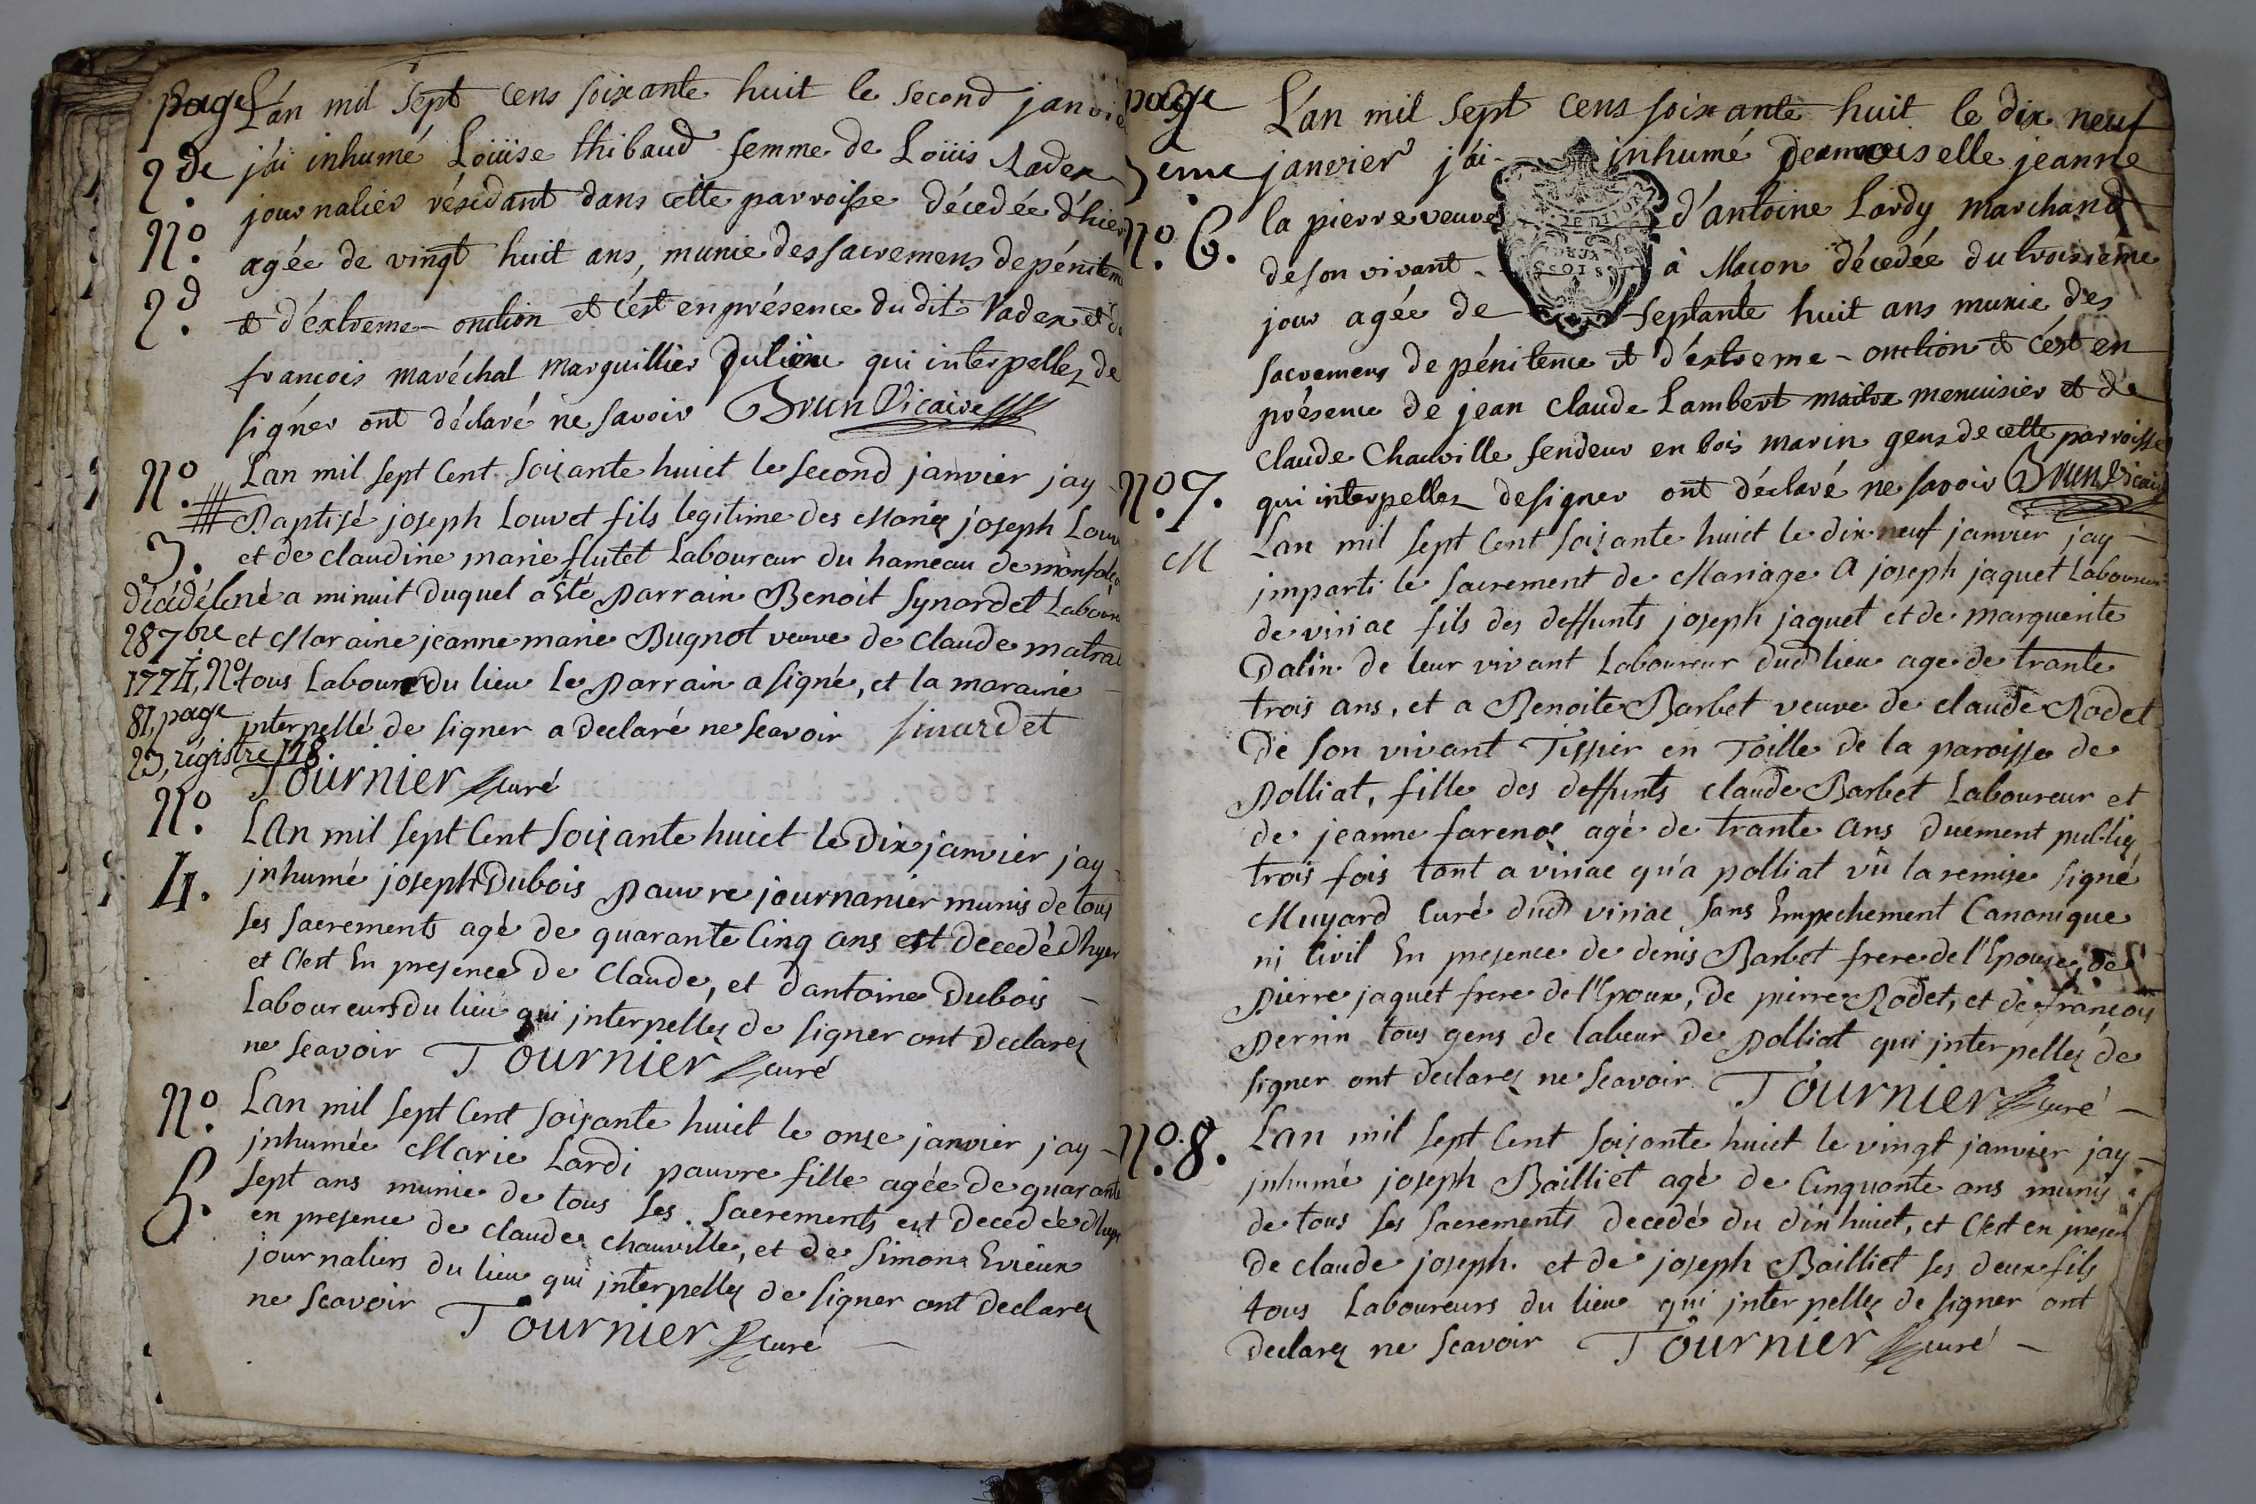 page
2de
L'an mil sept cens soixante huit le second janvie
j'ai inhumé Loüise thibaud femme de Loüis Vadex
journalier résidant dans cette parroisse décedée d'hier
agée de vingt huit ans, munie des sacremens de péniten
et d'extreme-onction et c'est en présence du dit Vadex et de
francois maréchal marguillier du lieu qui interpellez de
signer ont déclaré ne savoir Brun Vicaire
n°.
2d.
Lan mil sept Cent soixante huict le second janvier jay
Baptisé joseph Louvet fils legitime des Mariez joseph Louv
et de claudine marie flutet Laboureur du hameau de monfal
né a minuit duquel a Eté Parrain Benoit Synardet Labour
et Maraine jeanne marie Bugnot veuve de claude matra
tous Labour du lieu Le Parrain a signé, et la maraine
jnterpellé de signer a declaré ne scavoir sinardet
Tournier curé
n°.
3.
décédé le
28 7bre
1774, N°
81, page
23, registre 118
Lan mil sept Cent soixante huict le dix janvier jay
jnhumé joseph Dubois Pauvre journanier munis de tous
ses sacrements agé de quarante Cinq ans est decedé dhyer
et C'est En presence de Claude, et dantoine Dubois
Laboureurs du lieu qui jnterpellez de signer ont Declarez
ne scavoir Tournier curé
n°.
4.
Lan mil sept Cent soixante huict le onze janvier jay
jnhumée Marie Lardi pauvre fille agée de quarante
sept ans munie de tous ses sacrements est decedée dhyer
en presence de claude chauville, et de simon Evieux
journaliers du lieu qui jnterpellez de signer ont declarez
ne scavoir Tournier curé
n°.
5.
page
3eme
L'an mil sept cens soixante huit le dix neuf
janvier j'ai inhumé demoiselle jeanne
la pierre veuve d'antoine Lardy marchand
de son vivant à Macon décedée du troisieme
jour agée de septante huit ans munie des
sacremens de pénitence et d'extreme-onction et c'est en
présence de jean claude Lambert maitre menuisier et de
claude Chauville fendeur en bois marin gens de cette parroisse
qui interpellez de signer ont déclaré ne savoir Brun Vicaire
n°. 6.
Lan mil sept Cent soixante huict le dix neuf janvier jay
jmparti le sacrement de Mariage A joseph jaquet Laboureur
de viriac fils des deffunts joseph jaquet et de marguerite
Dalin de leur vivant Laboureur dud lieu age de trante
trois ans, et a Benoite Barbet veuve de claude Rodet
De son vivant Tissier en Toille de la paroisse de
Polliat, fille des deffunts claude Barbet Laboureur et
de jeanne farenos agé de trante Ans duement publiez
trois fois tant a viriac qu'a polliat vû la remise signé
Muyard Curé dud viriac sans Empechement Canonique
ni Civil En presence de denis Barbet frere de l'Epouse, de
Pierre jaquet frere de l'Epoux, de pierre Rodet, et de francois
Perrin tous gens de labeur de Polliat qui jnterpellez de
signer ont declarez ne scavoir Tournier curé
n°. 7.
M
Lan mil sept Cent soixante huict le vingt janvier jay
jnhumé joseph Bailliet agé de Cinquante ans munis
de tous ses sacrements decedé du dix huict, et C'est en presen
de claude joseph. et de joseph Bailliet ses deux fils
tous Laboureurs du lieu qui jnterpellez de signer ont
declarez ne scavoir Tournier curé
n°. 8.